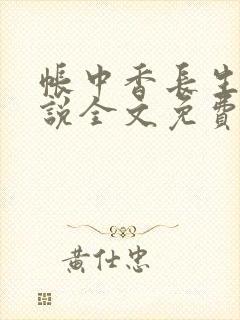 帳中香長生
說全文免費
黃仕忠